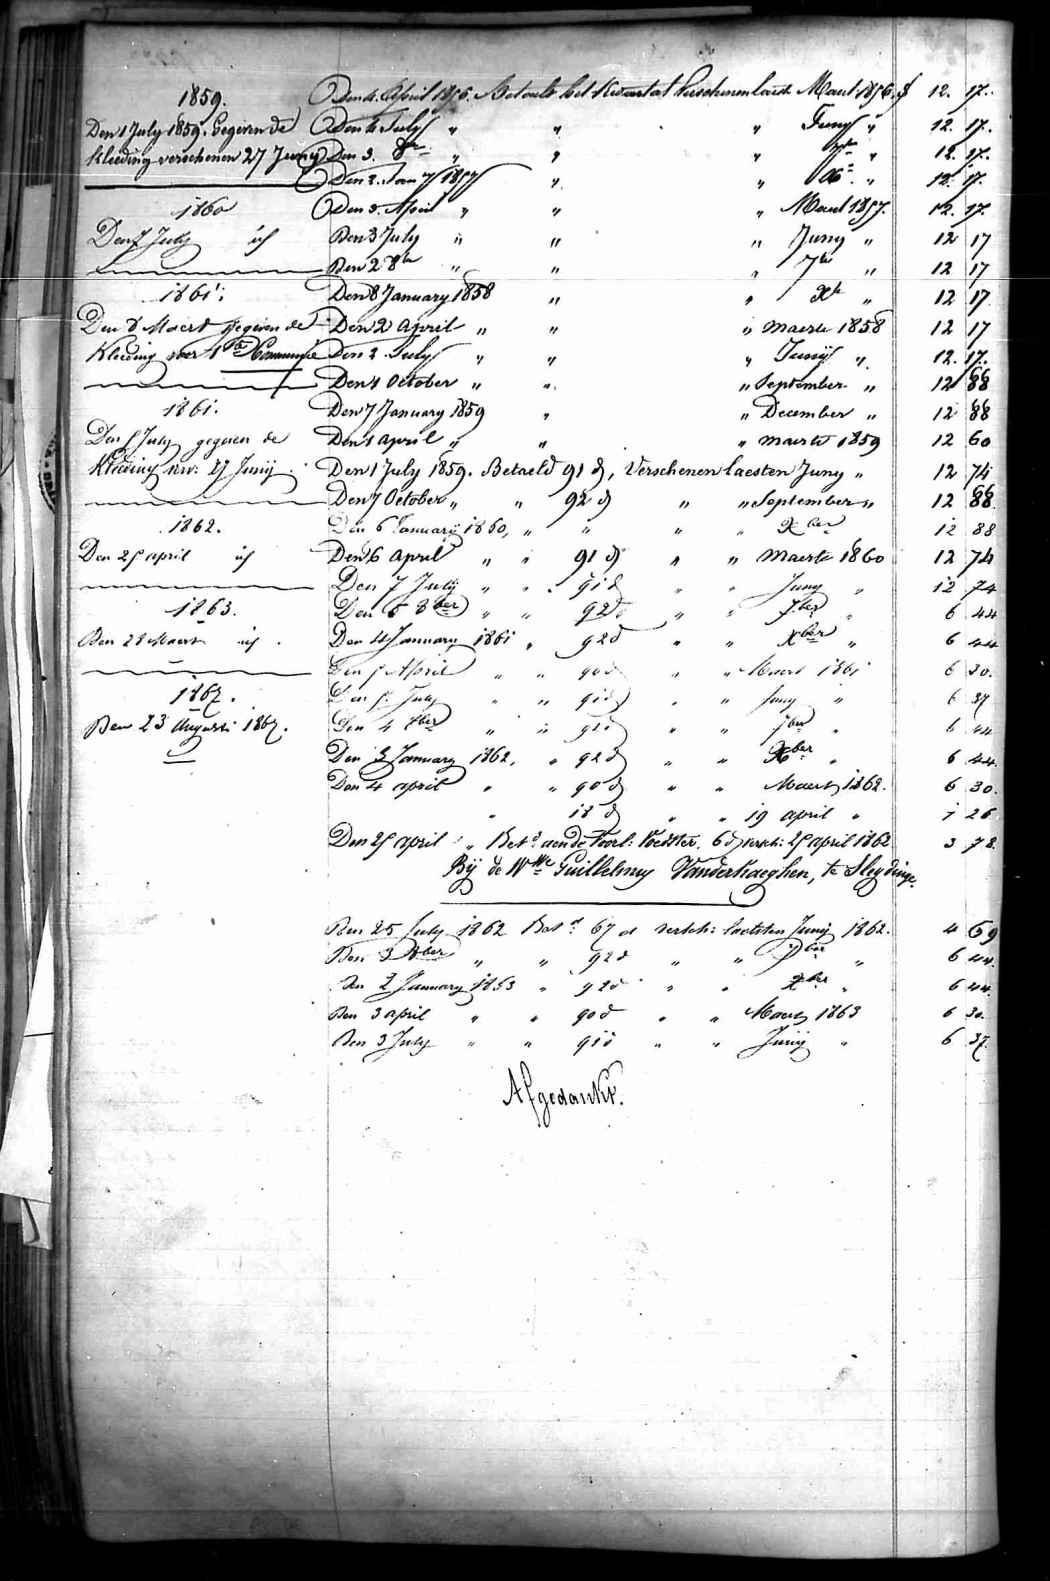 1859.
Den 1 July 1859. Gegeven de
Kleeding verschenen 27 Juny
1860
Den 7 July id
1861.
Den 8 Maert gegeven de
Kleeding voor 1ste Communie
1861.
Den 5 July gegeven de
Kleeding ver: 27 Junij
1862.
Den 25 april id
1863.
Den 28 Maert id.
1867.
Den 23 Augusti 1867.
Den 4. April 1856. Betaelt het Kwartal verschenen laest Maert 1856. f 12. 17.
Den 4 July " " " Juny " 12. 17.
Den 3. 8re " " " 7re " 12. 17.
Den 2. Jany 1857 " " Xe. " 12. 17.
Den 3. April " " " Maert 1857. 12. 17.
Den 3 July " " " Juny " 12 17
Den 2 8br " " " 7br " 12 17
Den 8 January 1858 " " Xbr " 12 17
Den 2 april " " " maerte 1858 12 17
Den 2 July " " " Junij " 12. 17.
Den 1 October " " " September " 12 88
Den 7 January 1859 " " December " 12 88
Den 1 april " " " maerte 1859 12 60
Den 1 July 1859. Betaeld 91 d, Verschenen laesten Juny " 12 74
Den 7 October " " 92 d " " September " 12 88
Den 6 Januarij 1860, " " " " Xber 12 88
Den 6 april " " 91 d " " maerte 1860 12 74
Den 7 July " " 91 d " " Juny " 12 74
Den 6 8ber " " 92 d " " 7ber " 6 44
Den 4 January 1861 " 92 d " " Xber " 6 44
Den 5 April " " 90 d " " Maert 1861 6 30.
Den 5. July " " 91 d " " Juny " 6 37
Den 4 8ber " " 92 d " " 7ber " 6 44
Den 3 January 1862, " 92 d " " Xber " 6 44.
Den 4 april " " 90 d " " Maert 1862. 6 30.
" 18 d " " 19 april " 1 26
Den 25 april " Bet. aen de Voorl: Voedster. 6 d versch: 25 april 1862 3 78.
Bij de Wwe Guillelmus Vanderhaeghen, te Sleydinge.
Den 25 July 1862 Betd. 67 d versch: laetsten Junij 1862. 4 69
Den 3 8ber " " 92 d " " 7ber " 6 44.
Den 2 January 1863 " 92 d " " Xbre " 6 44.
Den 3 april " " 90 d " " Maert 1863 6 30.
Den 3 July " " 91 d " " Junij " 6 37.
Afgedankt.